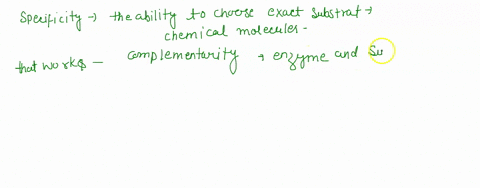 Specificity → the ability to choose exact substrat →
chemical molecules -
that works - complementarity → enzyme and Su